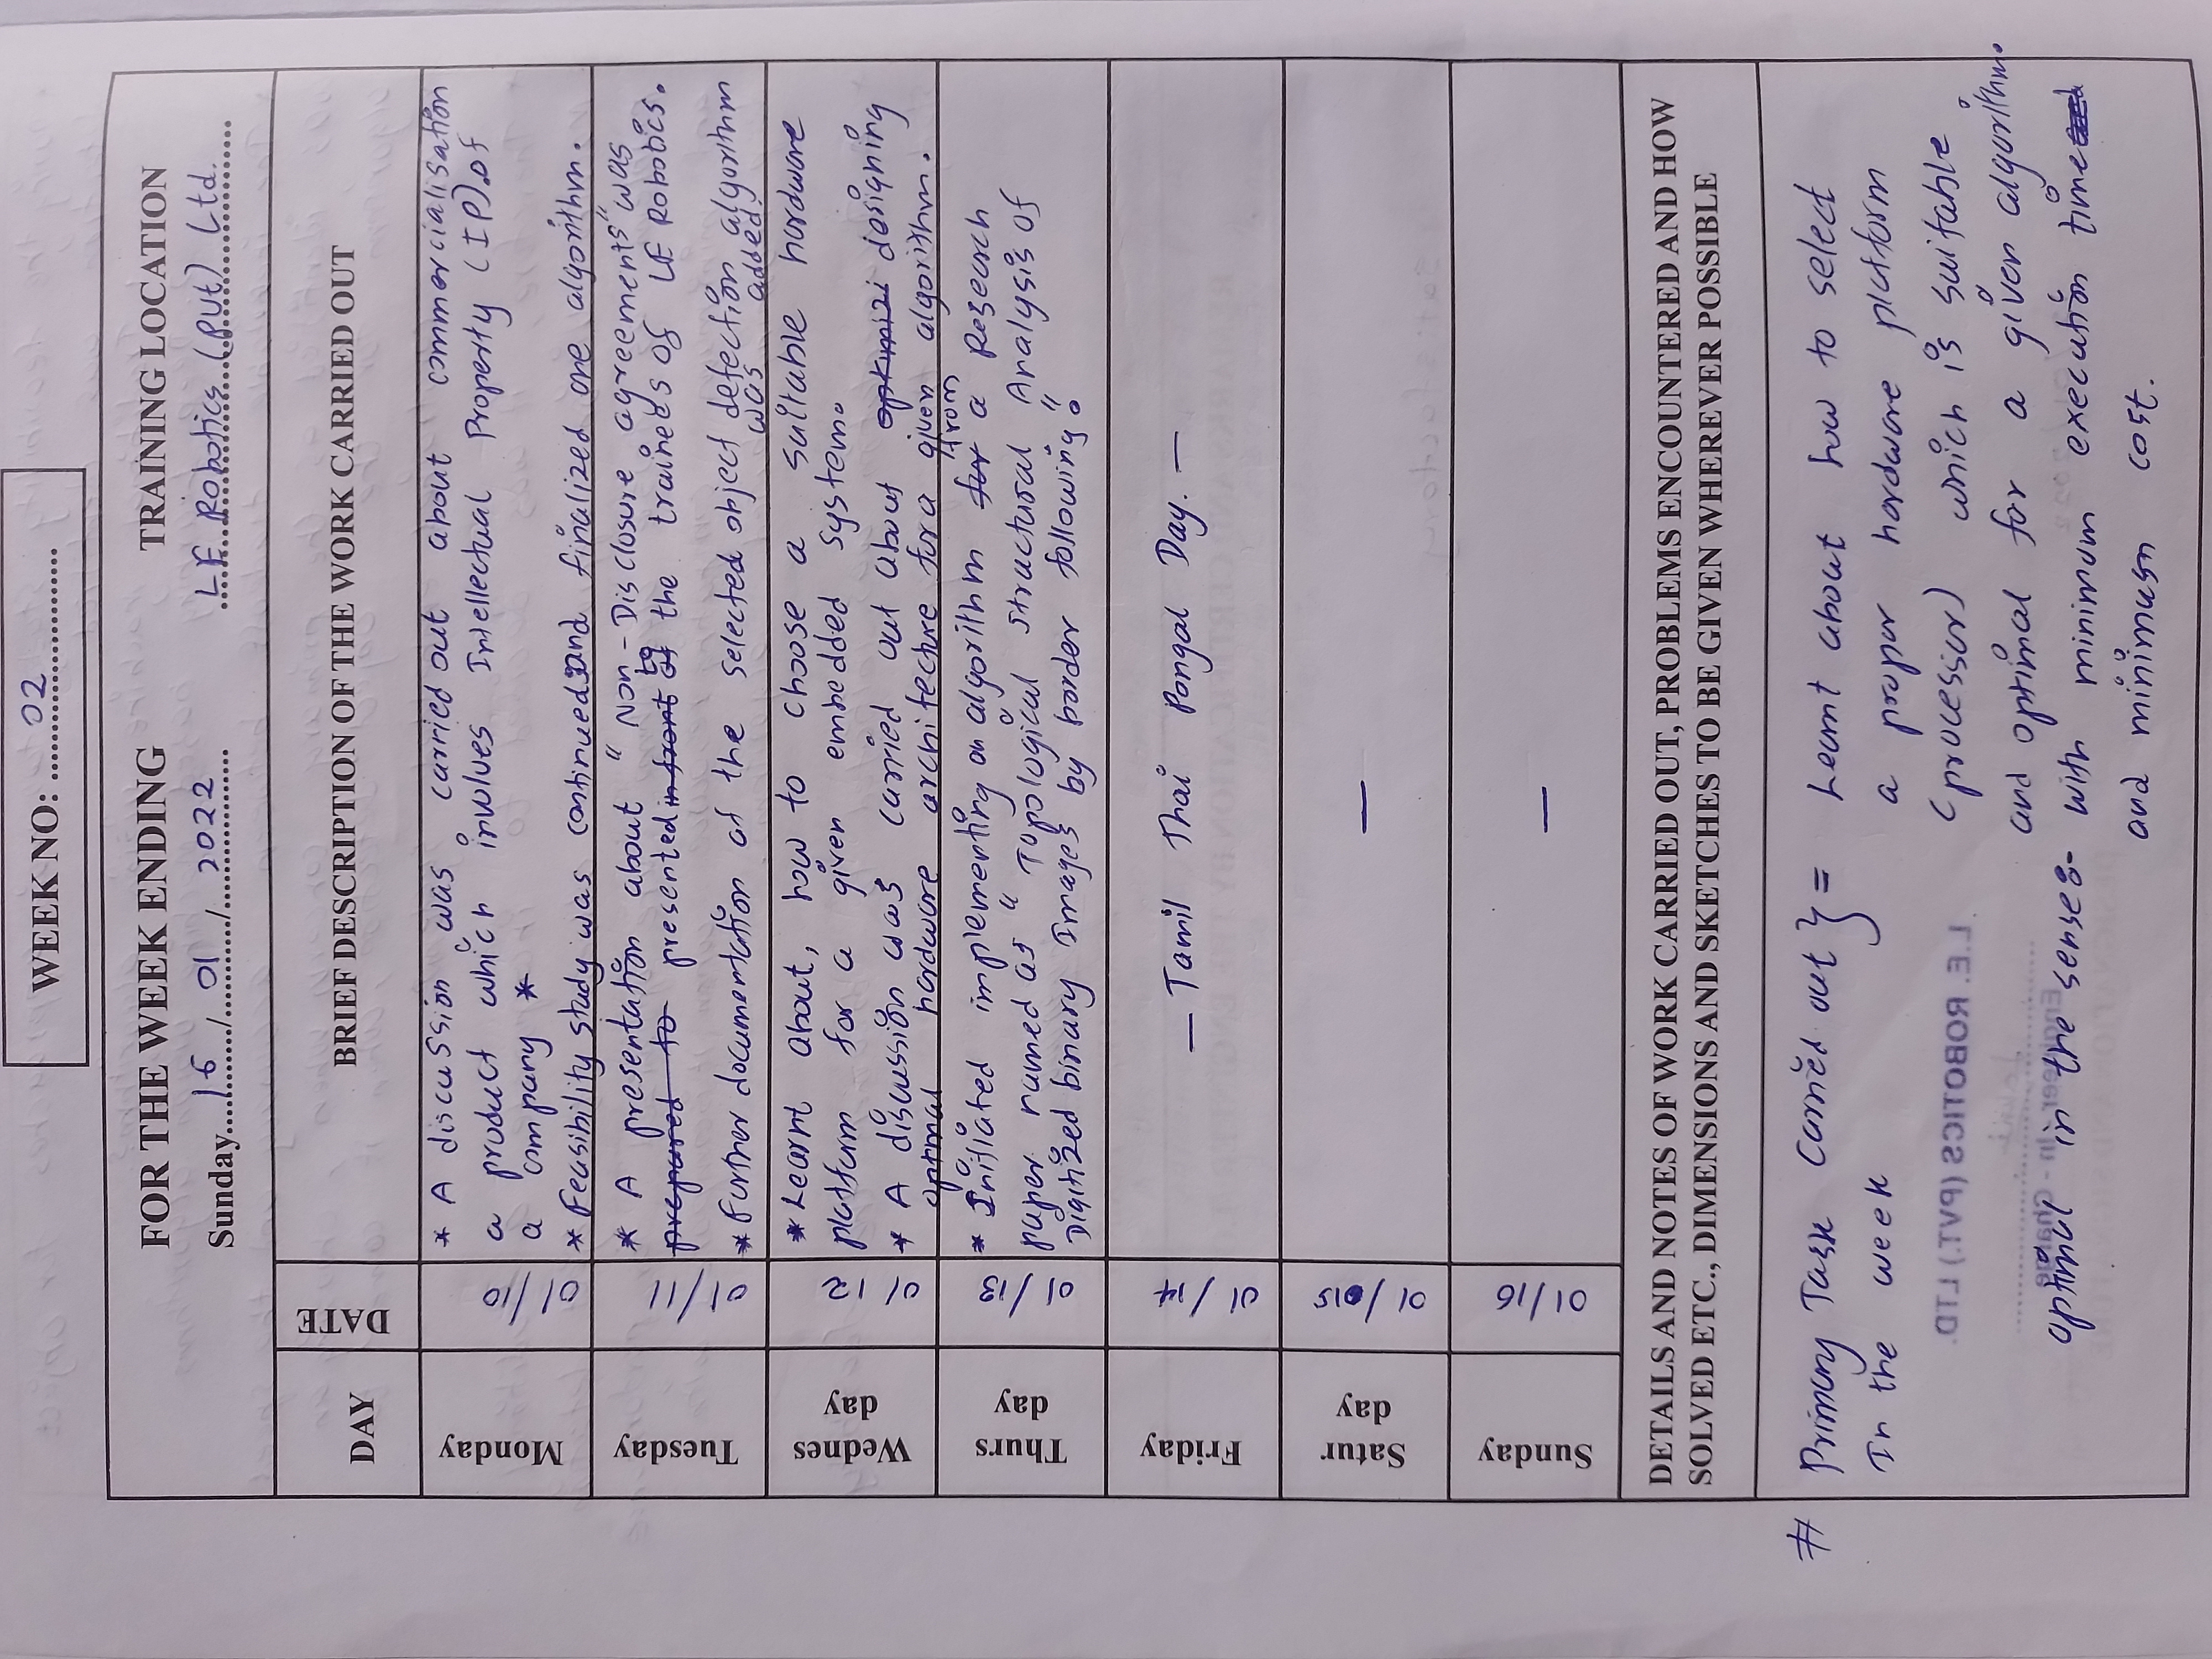 WEEK NO: 02
FOR THE WEEK ENDING
TRAINING LOCATION
Sunday 16 / 01 / 2022
LE Robotics (Pvt) Ltd.
DAY
DATE
BRIEF DESCRIPTION OF THE WORK CARRIED OUT
Monday
01/10
* A discussion was carried out about commercialisation
a product which involves Intellectual Property (IP) of
a company *
* Feasibility study was continued and finalized one algorithm.
Tuesday
01/11
* A presentation about "Non-Disclosure agreements" was
prepared to presented in front of to the trainees of LE Robotics.
* Further documentation of the selected object detection algorithm
was added.
Wednes
day
01/12
* Learnt about, how to choose a suitable hardware
platform for a given embedded system.
* A discussion was carried out about optimizi designing
optmal hardware architecture for a given algorithm.
Thurs
day
01/13
* Initiated implementing an algorithm for from a Research
paper named as "Topological Structural Analysis of
Digitized binary Images by border following".
Friday
01/14
— Tamil Thai Pongal Day. —
Satur
day
01/015
—
Sunday
01/16
—
DETAILS AND NOTES OF WORK CARRIED OUT, PROBLEMS ENCOUNTERED AND HOW
SOLVED ETC., DIMENSIONS AND SKETCHES TO BE GIVEN WHEREVER POSSIBLE
# Primary Task Carried out } = Learnt about how to select
In the week a proper hardware platform
(processor) which is suitable
and optimal for a given algorithm.
optimal in the sense:- with minimum execution time
and minimum cost.
L.E. ROBOTICS (PVT.) LTD.
Engineer - In - Charge